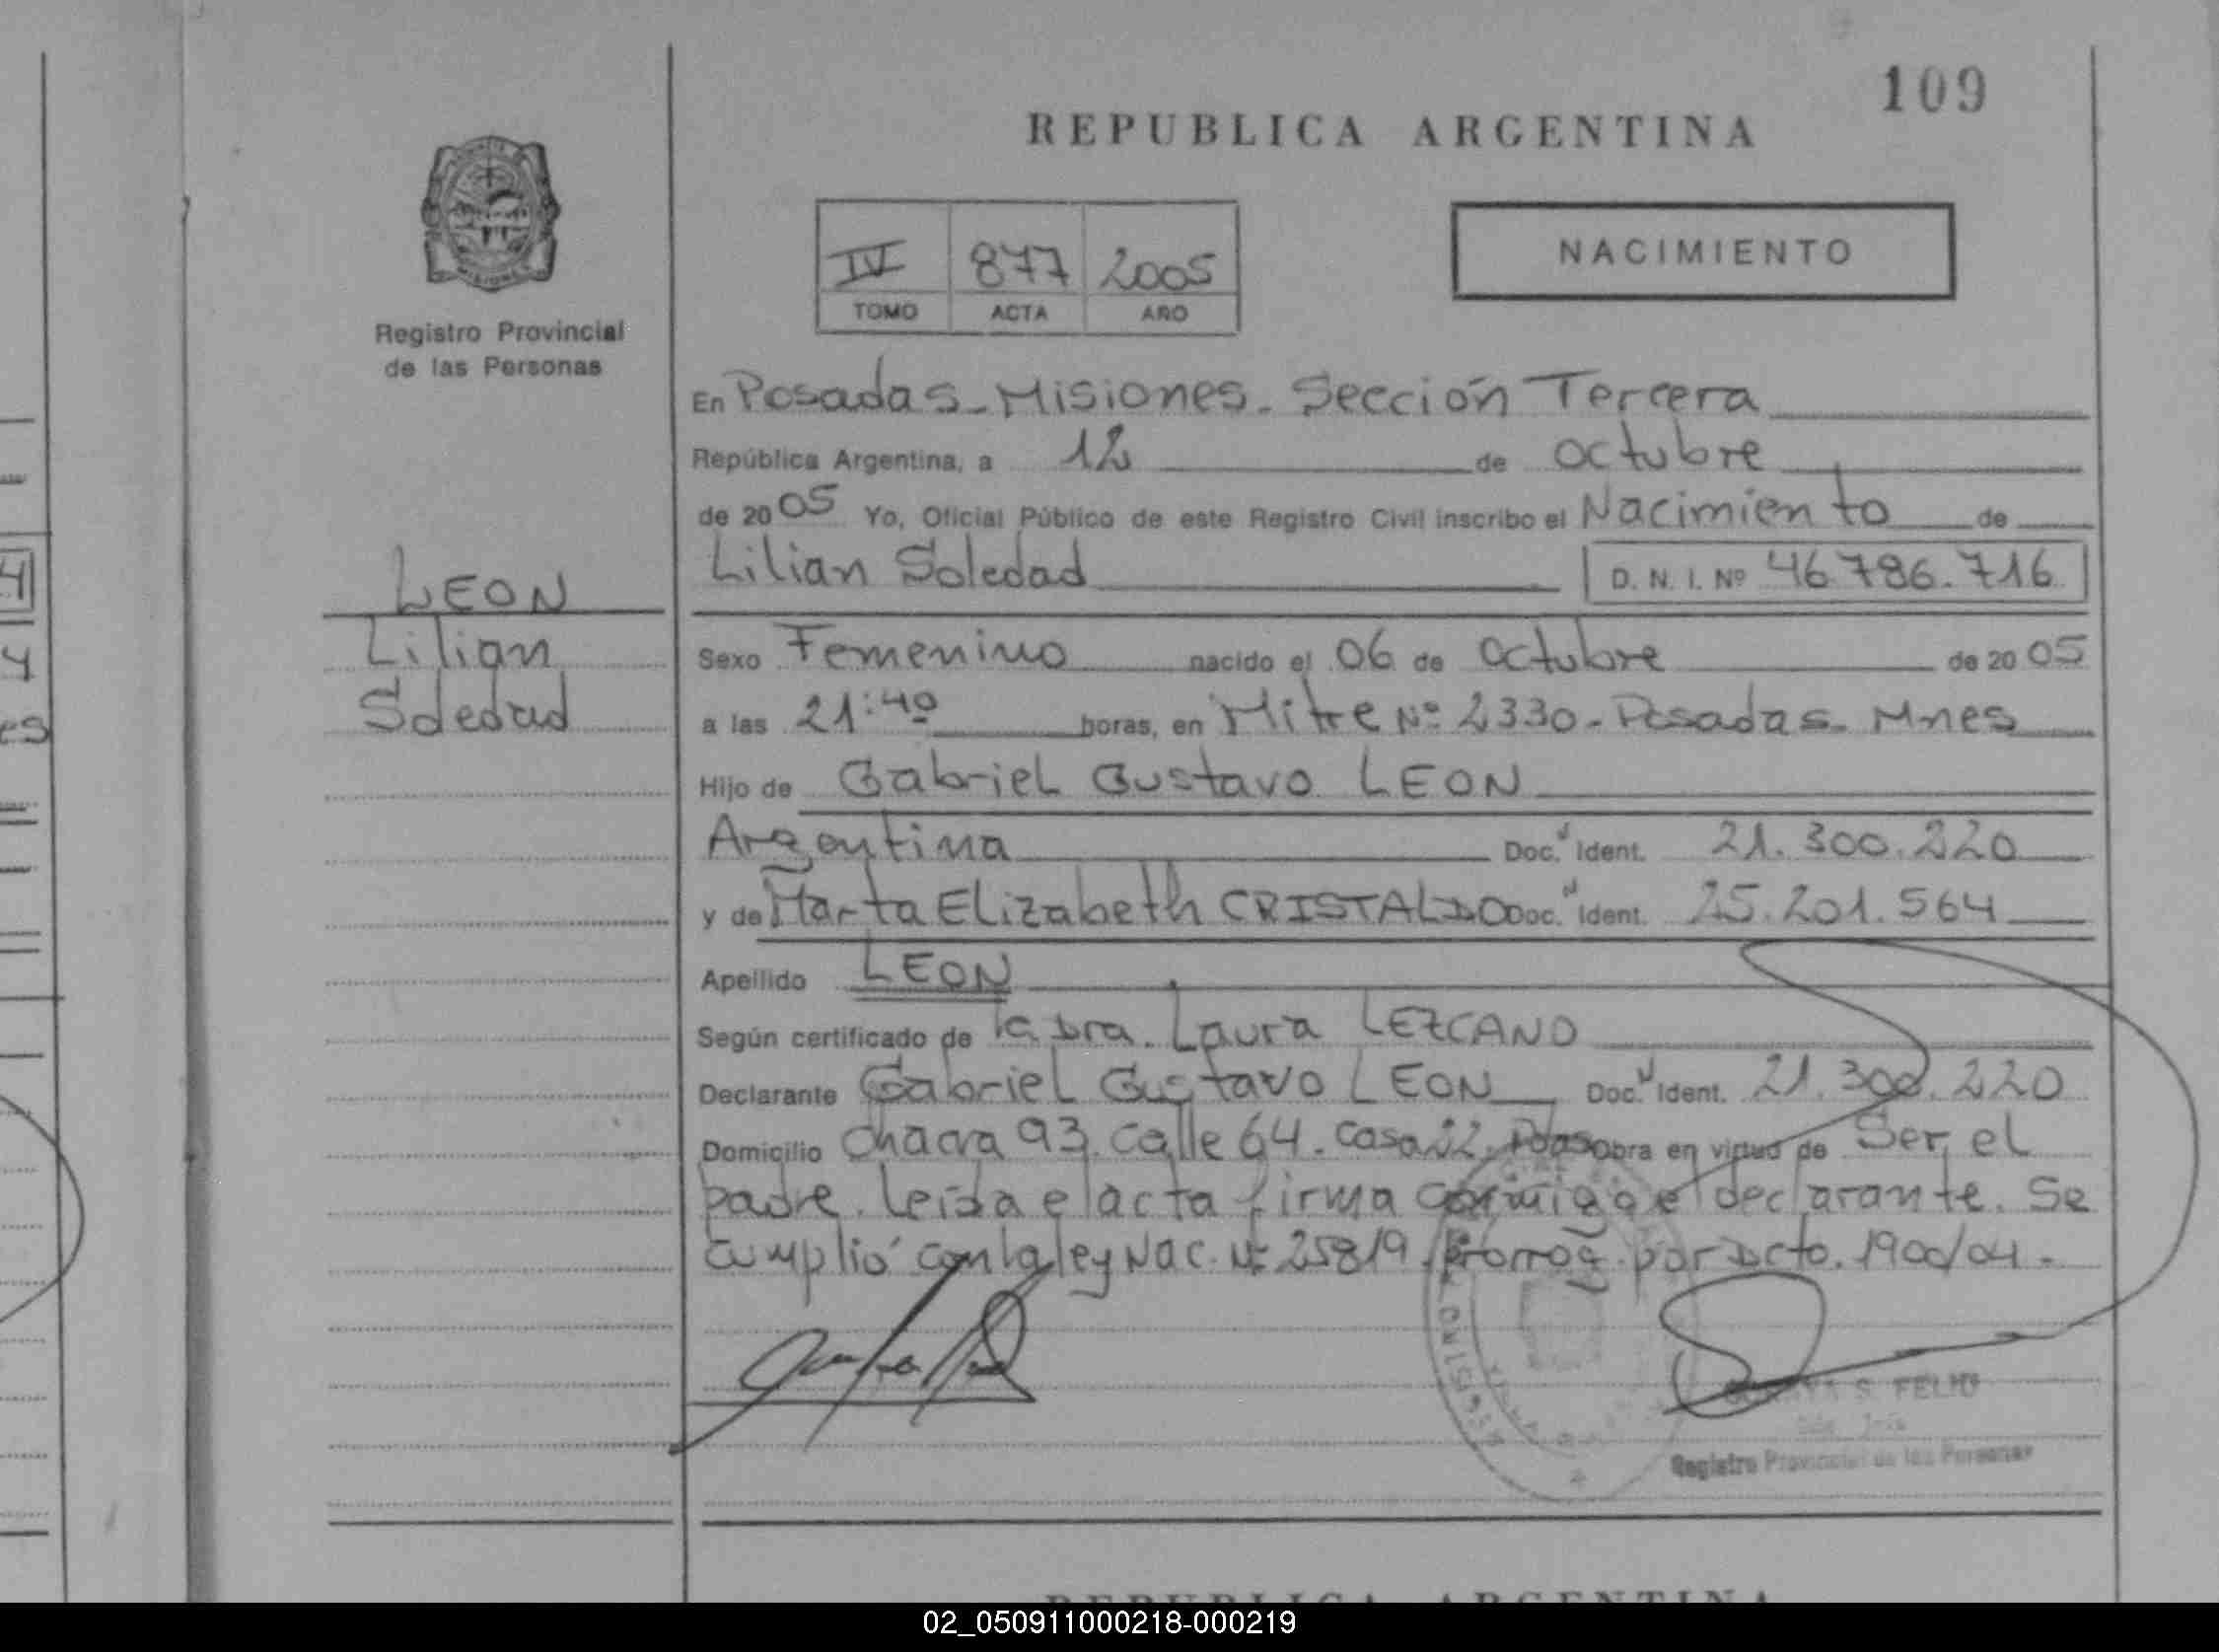 109
REPUBLICA ARGENTINA
NACIMIENTO
IV 877 2005
TOMO ACTA AÑO
Registro Provincial
de las Personas
En Posadas - Misiones - Sección Tercera
República Argentina, a 12 de octubre
de 2005 Yo, Oficial Público de este Registro Civil inscribo el Nacimiento de
Lilian Soledad D. N. I. Nº 46.786.716
LEON
Lilian
Soledad
Sexo Femenino nacido el 06 de Octubre de 2005
a las 21:40 horas, en Mitre Nº 2330 - Posadas - Mnes
Hijo de Gabriel Gustavo LEON
Argentina Doc. Ident. 21.300.220
y de Marta Elizabeth CRISTALDO Doc. Ident. 25.201.564
Apellido LEON
Según certificado de la Dra. Laura LEZCANO
Declarante Gabriel Gustavo LEON Doc. Ident. 21.300.220
Domicilio Chacra 93. Calle 64. Casa 22. Pdas Obra en virtud de Ser el
padre. Leída el acta firma conmigo el declarante. Se
cumplió con la ley Nac. Nº 25819. Prorrog. por Dcto. 1900/04.
MISIONES
S. FELIU
Registro Provincial de las Personas
REPUBLICA ARGENTINA
02_050911000218-000219